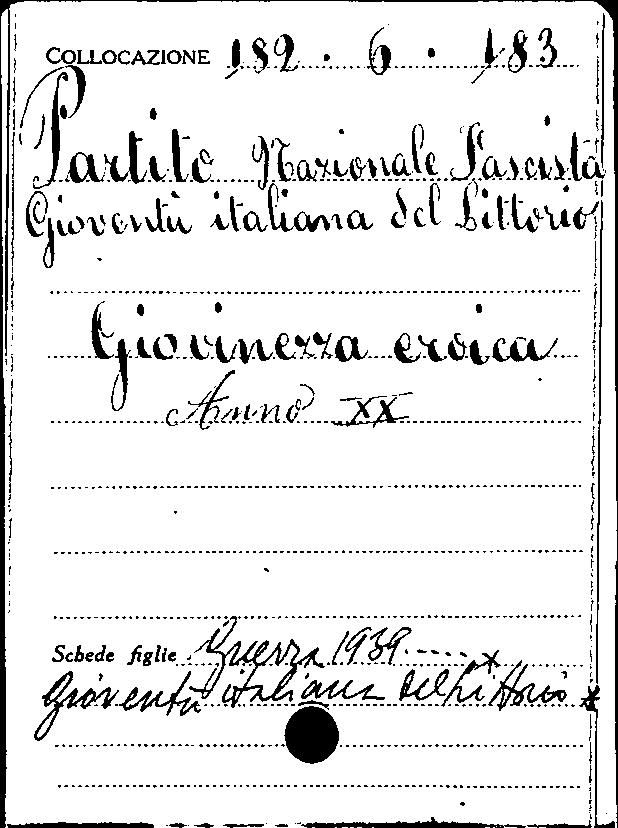 COLLOCAZIONE 182 · 6 · 183
Partito Nazionale Fascista
Gioventù italiana del Littorio
Giovinezza eroica
Anno XX
Schede figlie Guerra 1939.----*
Gioventù italiana del Littorio *